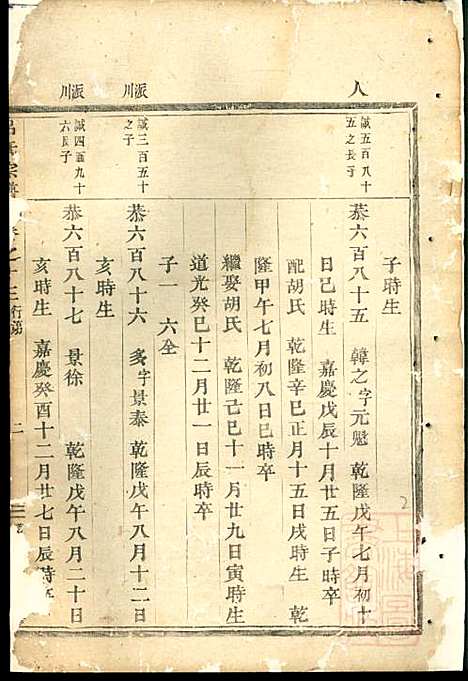 八
誠五百八十
五之長子
子時生
恭六百八十五 韓之字元魁 乾隆戊午七月初十
日巳時生 嘉慶戊辰十月廿五日子時卒
配胡氏 乾隆辛巳正月十五日戌時生 乾
隆甲午七月初八日巳時卒
繼娶胡氏 乾隆己巳十一月廿九日寅時生
道光癸巳十二月廿一日辰時卒
子一 六全
派川
誠三百五十
之子
恭六百八十六 多字景泰 乾隆戊午八月十二日
亥時生
派川
誠四百九十
六長子
恭六百八十七 景徐 乾隆戊午八月二十日
亥時生 嘉慶癸酉十二月廿七日辰時卒
呂氏宗譜 卷之十三 行第 二